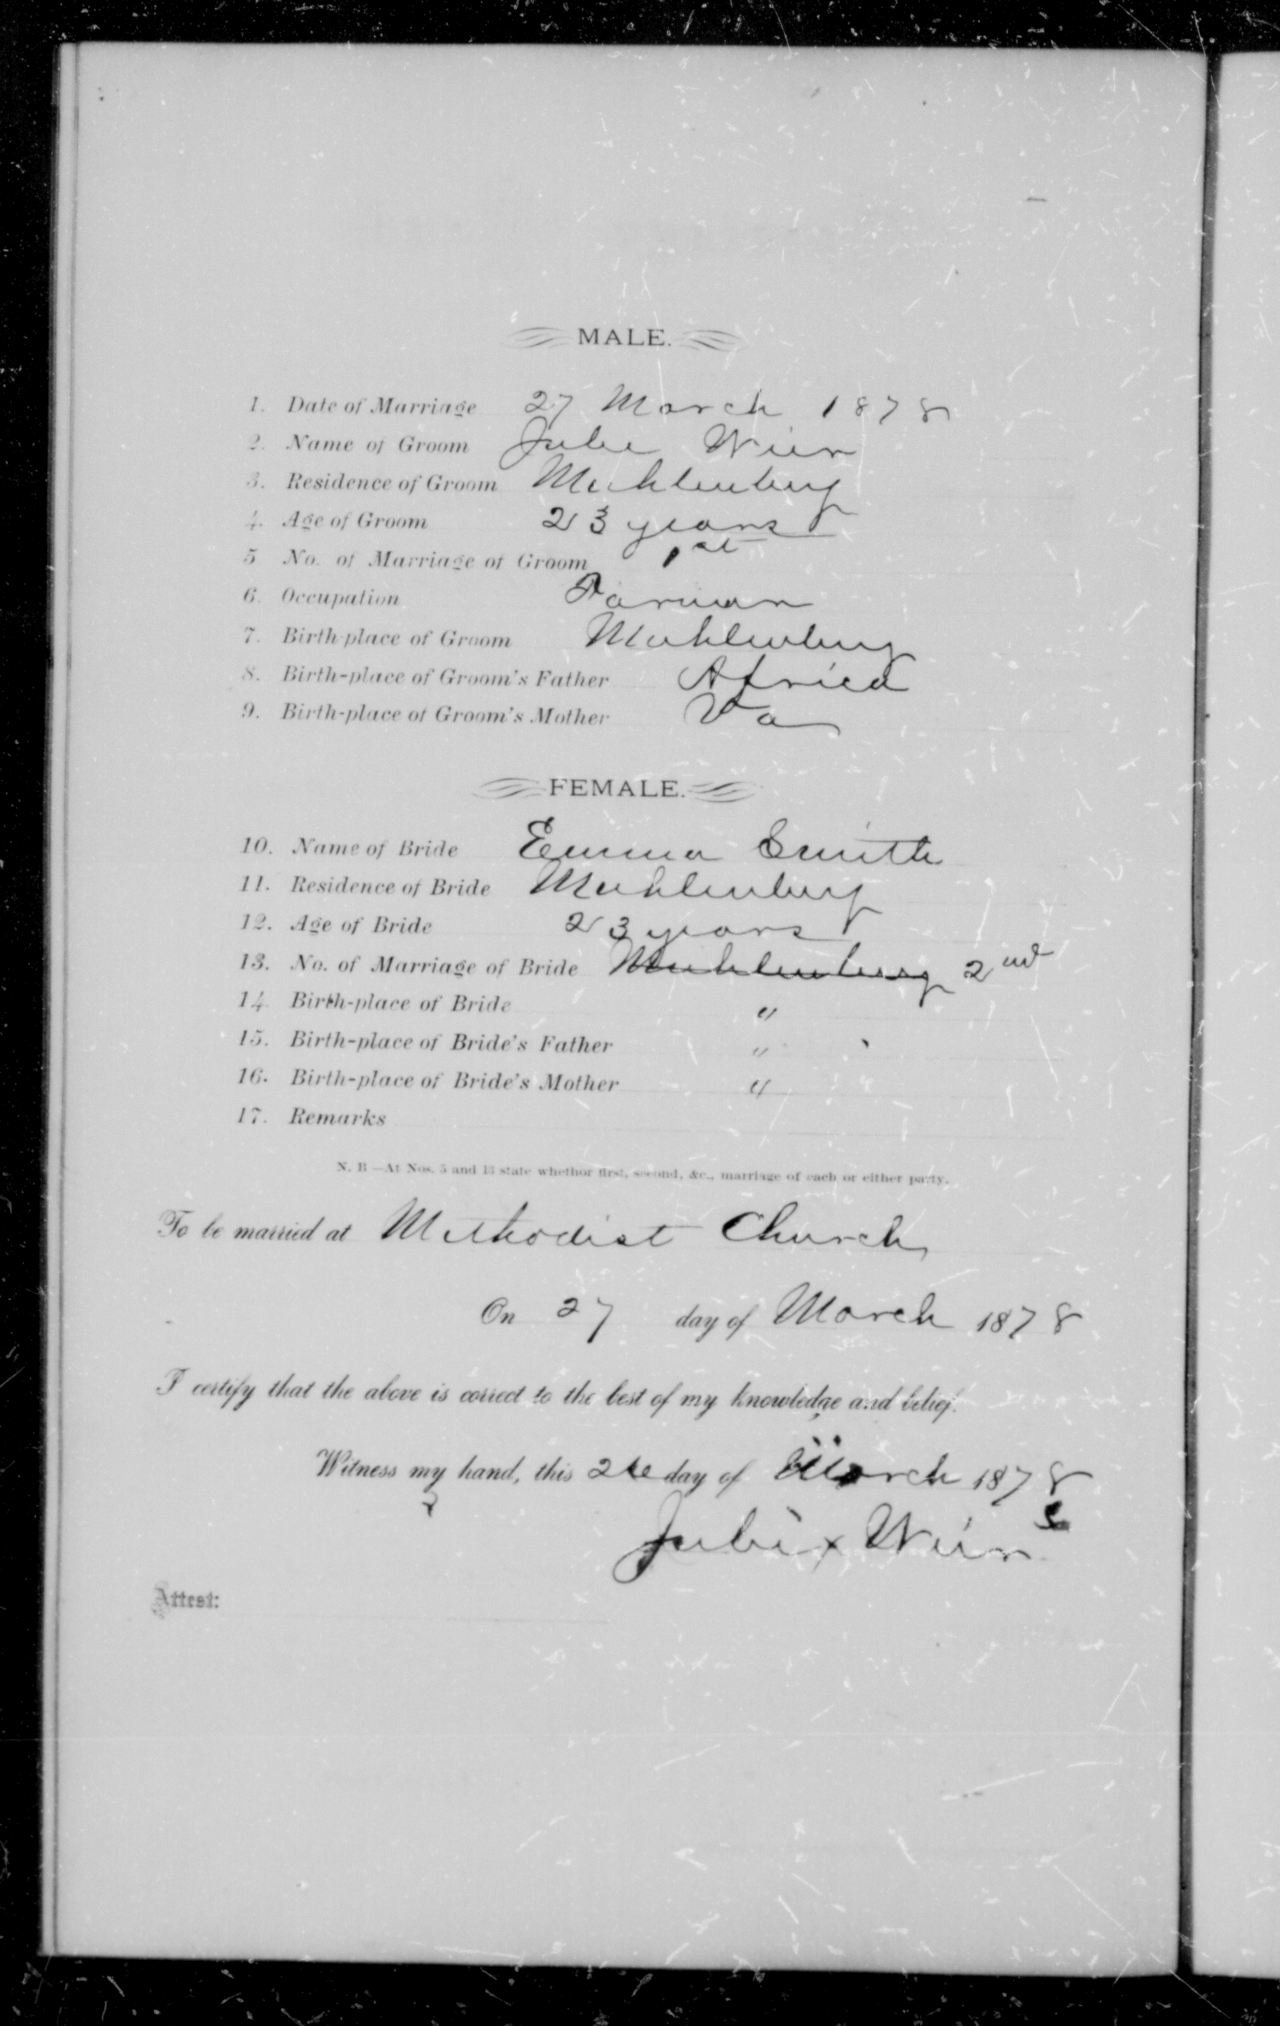 MALE.
1. Date of Marriage 27 March 1878
2. Name of Groom Jube Wier
3. Residence of Groom Muhlenberg
4. Age of Groom 23 years
5 No. of Marriage of Groom 1st
6. Occupation Farmer
7. Birth-place of Groom Muhlenberg
8. Birth-place of Groom's Father Africa
9. Birth-place of Groom's Mother Va
FEMALE.
10. Name of Bride Emma Smith
11. Residence of Bride Muhlenberg
12. Age of Bride 23 years
13. No. of Marriage of Bride Muhlenberg 2nd
14. Birth-place of Bride "
15. Birth-place of Bride's Father "
16. Birth-place of Bride's Mother "
17. Remarks
N. B—At Nos. 5 and 13 state whether first, second, &c., marriage of each or either party.
To be married at Methodist Church
On 27 day of March 1878
I certify that the above is correct to the best of my knowledge and belief.
Witness my hand, this 26 day of March 1878
Jube x Wier
Attest: